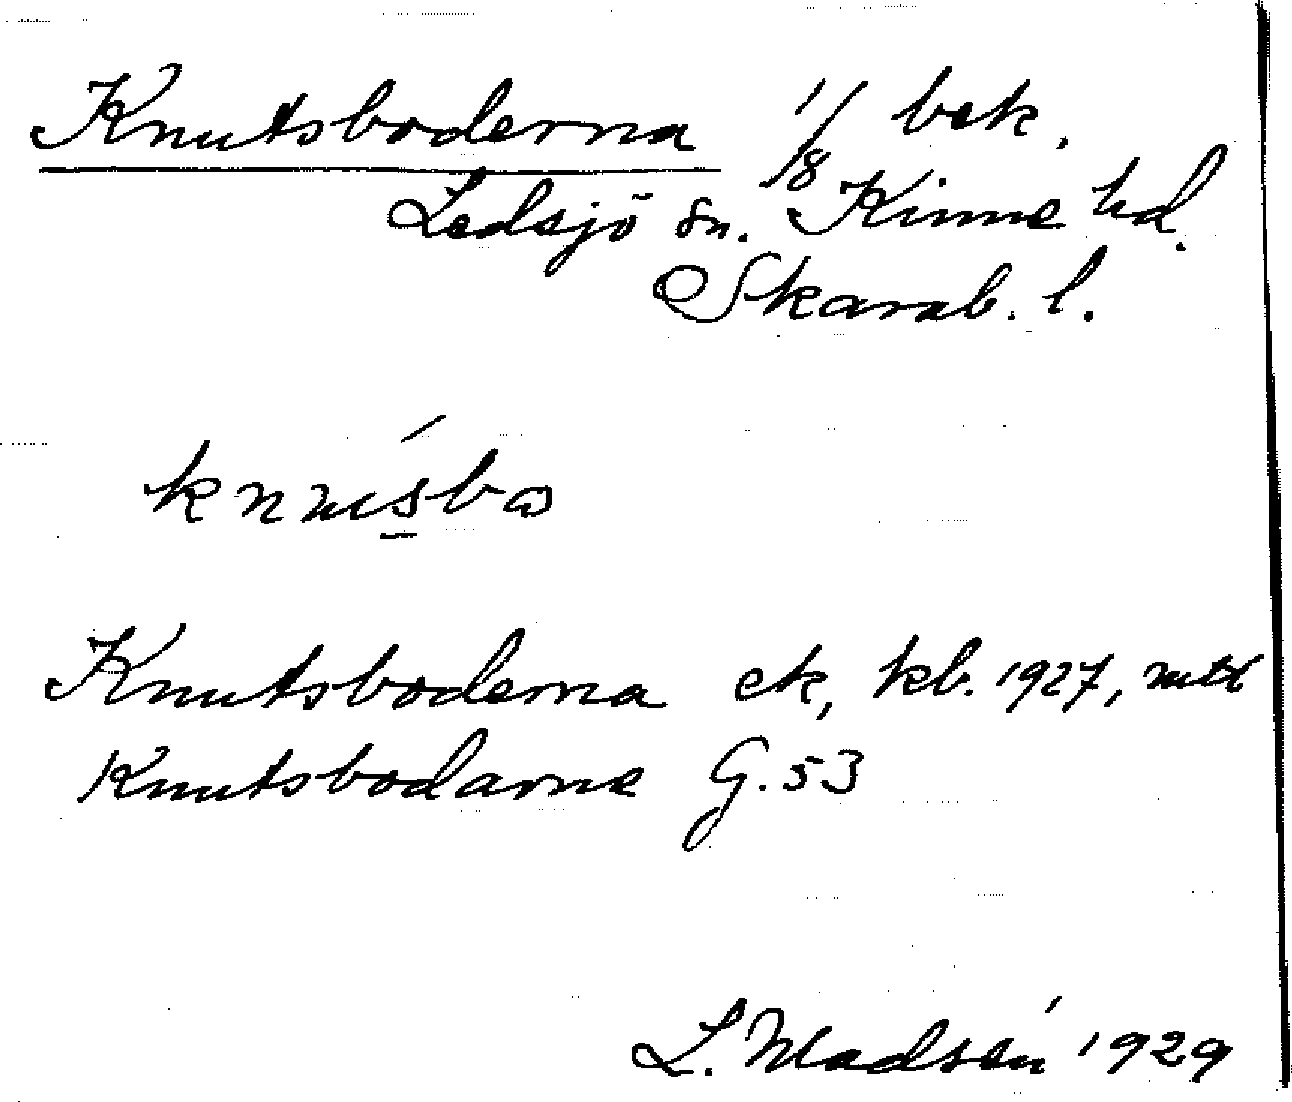 Knutsboderna 1/18 bek.
Ledsjö sn. Kinne hd.
Skarab. l.
Knutsboderna ek, kb. 1927, mtl
Knutsbodarne G. 53
L. Madsén 1929